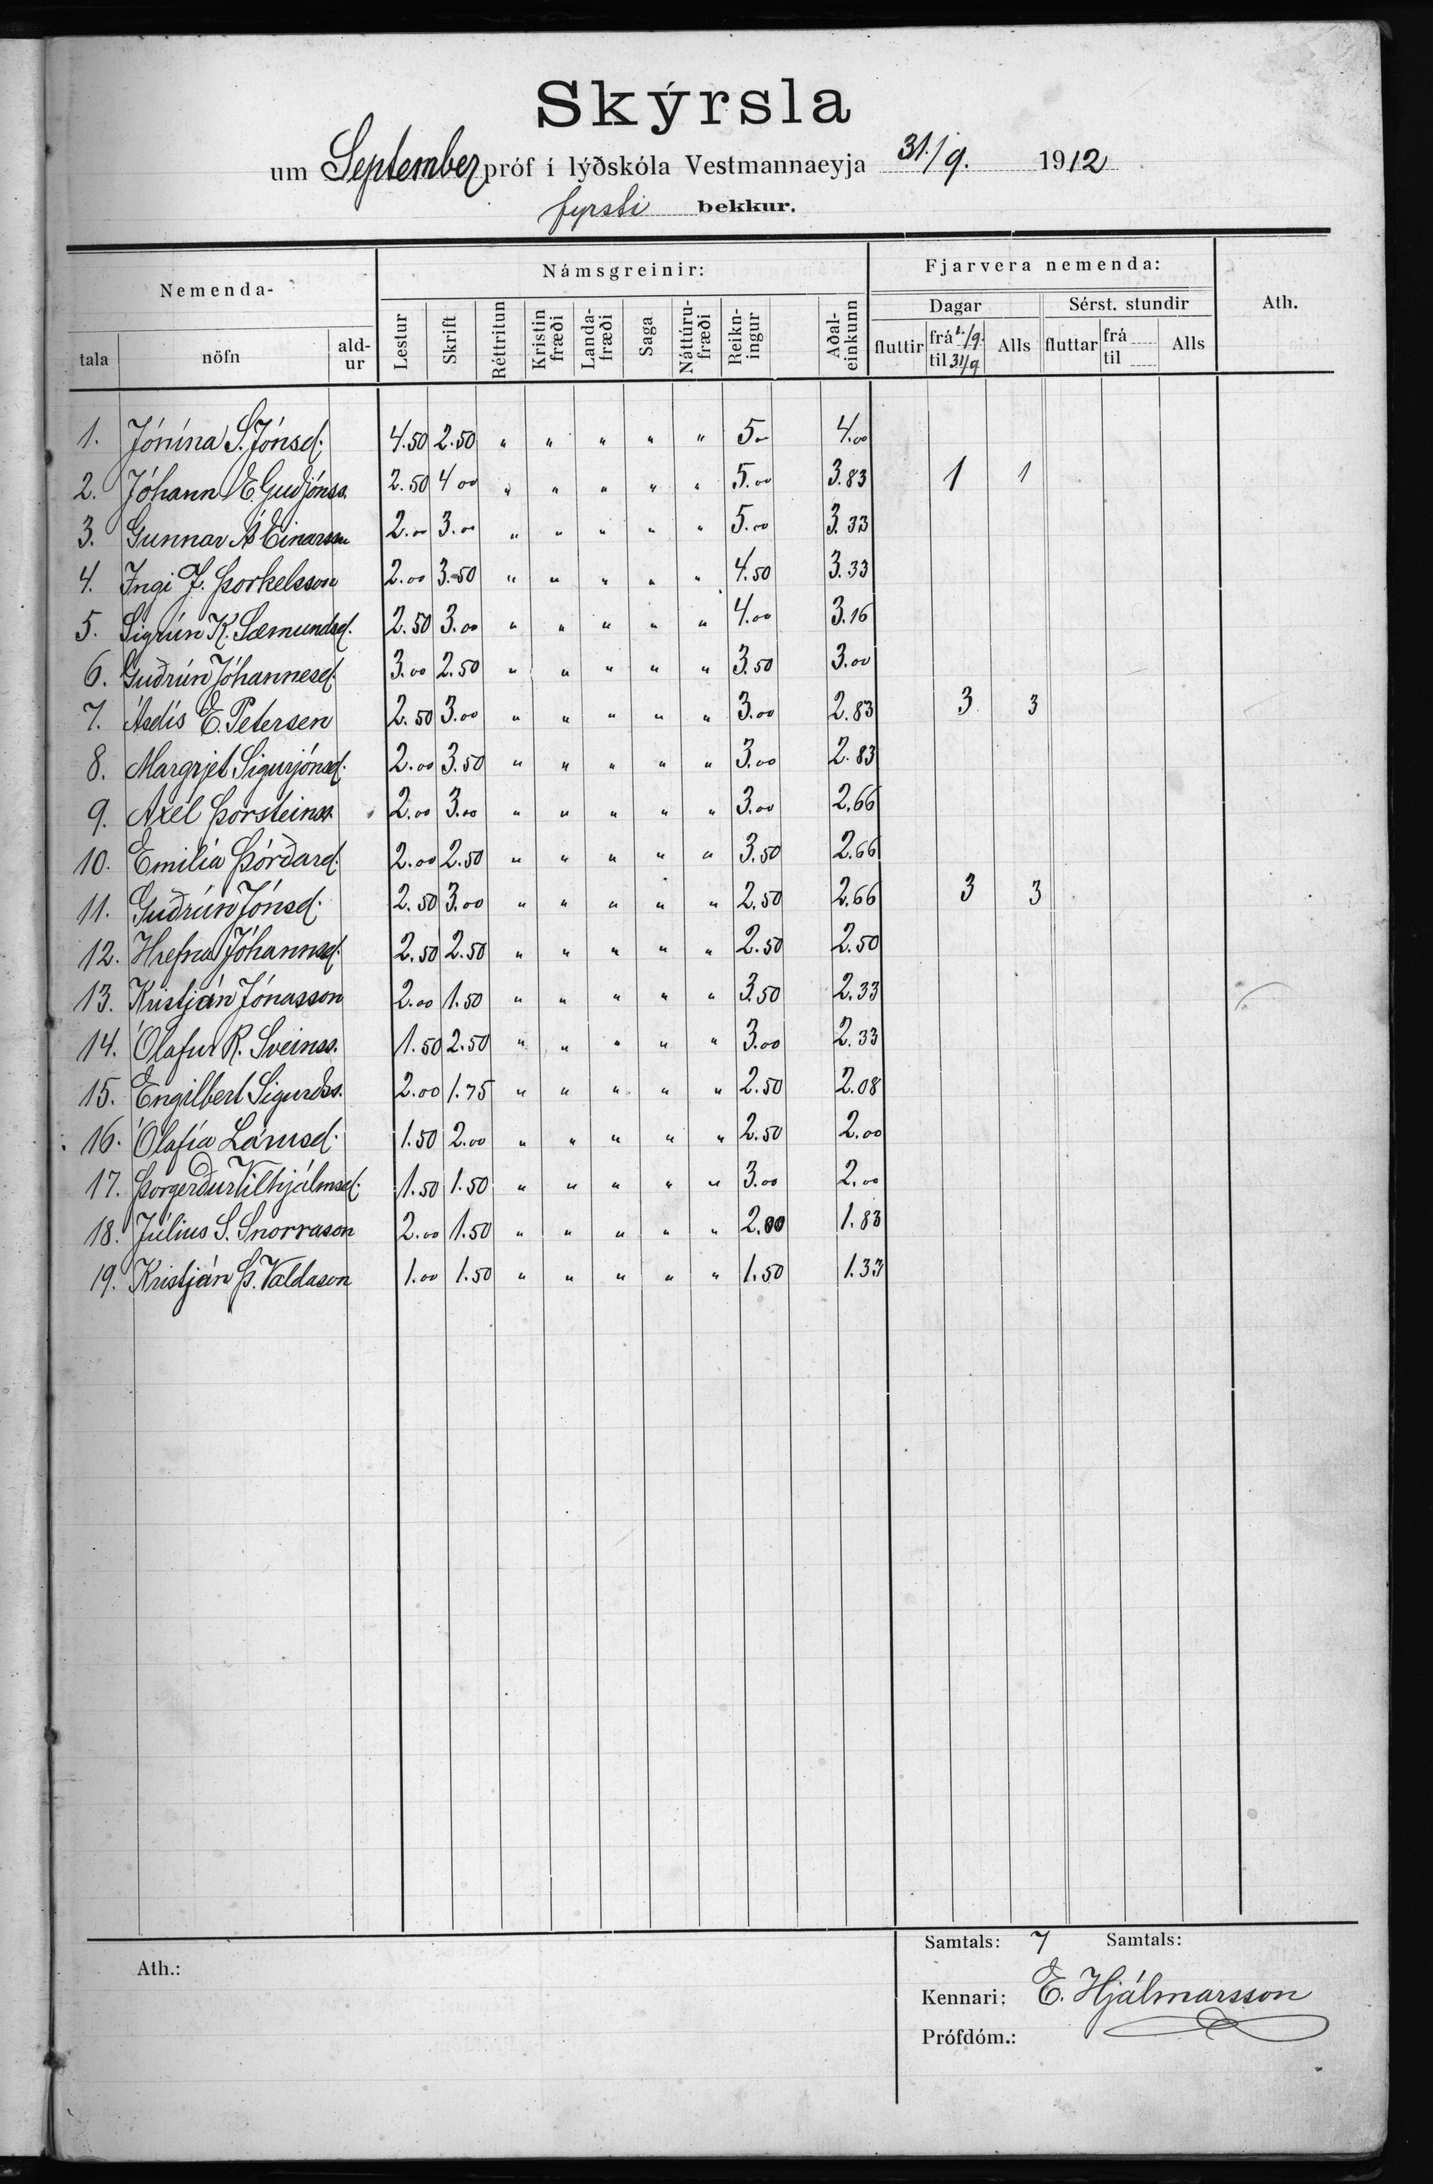 Skýrsla
um September próf í lýðskóla Vestmannaeyja 31./9. 1912
fyrsti bekkur.
Nemenda- Námsgreinir: Fjarvera nemenda: Ath.
Dagar Sérst. stundir
tala nöfn ald-ur Lestur Skrift Réttritun Kristinfræði Landa-fræði Saga Náttúru-fræði Reikn-ingur Aðal-einkunn fluttir frá 1./9. til 31/9 Alls fluttar frá til Alls
1. Jónína S. Jónsd. 4.50 2.50 " " " " " 5.- 4.00
2. Jóhann E Guðjónss. 2.50 4 00 " " " " " 5.00 3.83 1 1
3. Gunnar Á Einarsson 2.00 3.00 " " " " " 5.00 3.33
4. Ingi J. Þorkelsson 2.00 3.50 " " " " " 4.50 3.33
5. Sigrún K. Sæmundsd. 2.50 3.00 " " " " " 4.00 3.16
6. Guðrún Jóhannesd. 3.00 2.50 " " " " " 3.50 3.00
7. Ásdís E. Petersen 2.50 3.00 " " " " " 3.00 2.83 3 3
8. Margrjet Sigurjónsd. 2.00 3.50 " " " " " 3.00 2.83
9. Axel Þorsteinss. 2.00 3.00 " " " " " 3.00 2.66
10. Emilía Þórðard. 2.00 2.50 " " " " " 3.50 2.66
11. Guðrún Jónsd. 2.50 3.00 " " " " " 2.50 2.66 3 3
12. Hrefna Jóhannsd. 2.50 2.50 " " " " " 2.50 2.50
13. Kristján Jónasson 2.00 1.50 " " " " " 3.50 2.33
14. Ólafur R. Sveinss. 1.50 2.50 " " " " " 3.00 2.33
15. Engilbert Sigurðss. 2.00 1.75 " " " " " 2.50 2.08
16. Ólafía Lárusd. 1.50 2.00 " " " " " 2.50 2.00
17. Þorgerður Vilhjálmsd. 1.50 1.50 " " " " " 3.00 2.00
18. Július S. Snorrason 2.00 1.50 " " " " " 2.00 1.83
19. Kristján Þ. Valdason 1.00 1.50 " " " " " 1.50 1.33
Samtals: 7 Samtals:
Ath.:
Kennari: E. Hjálmarsson
Prófdóm.: